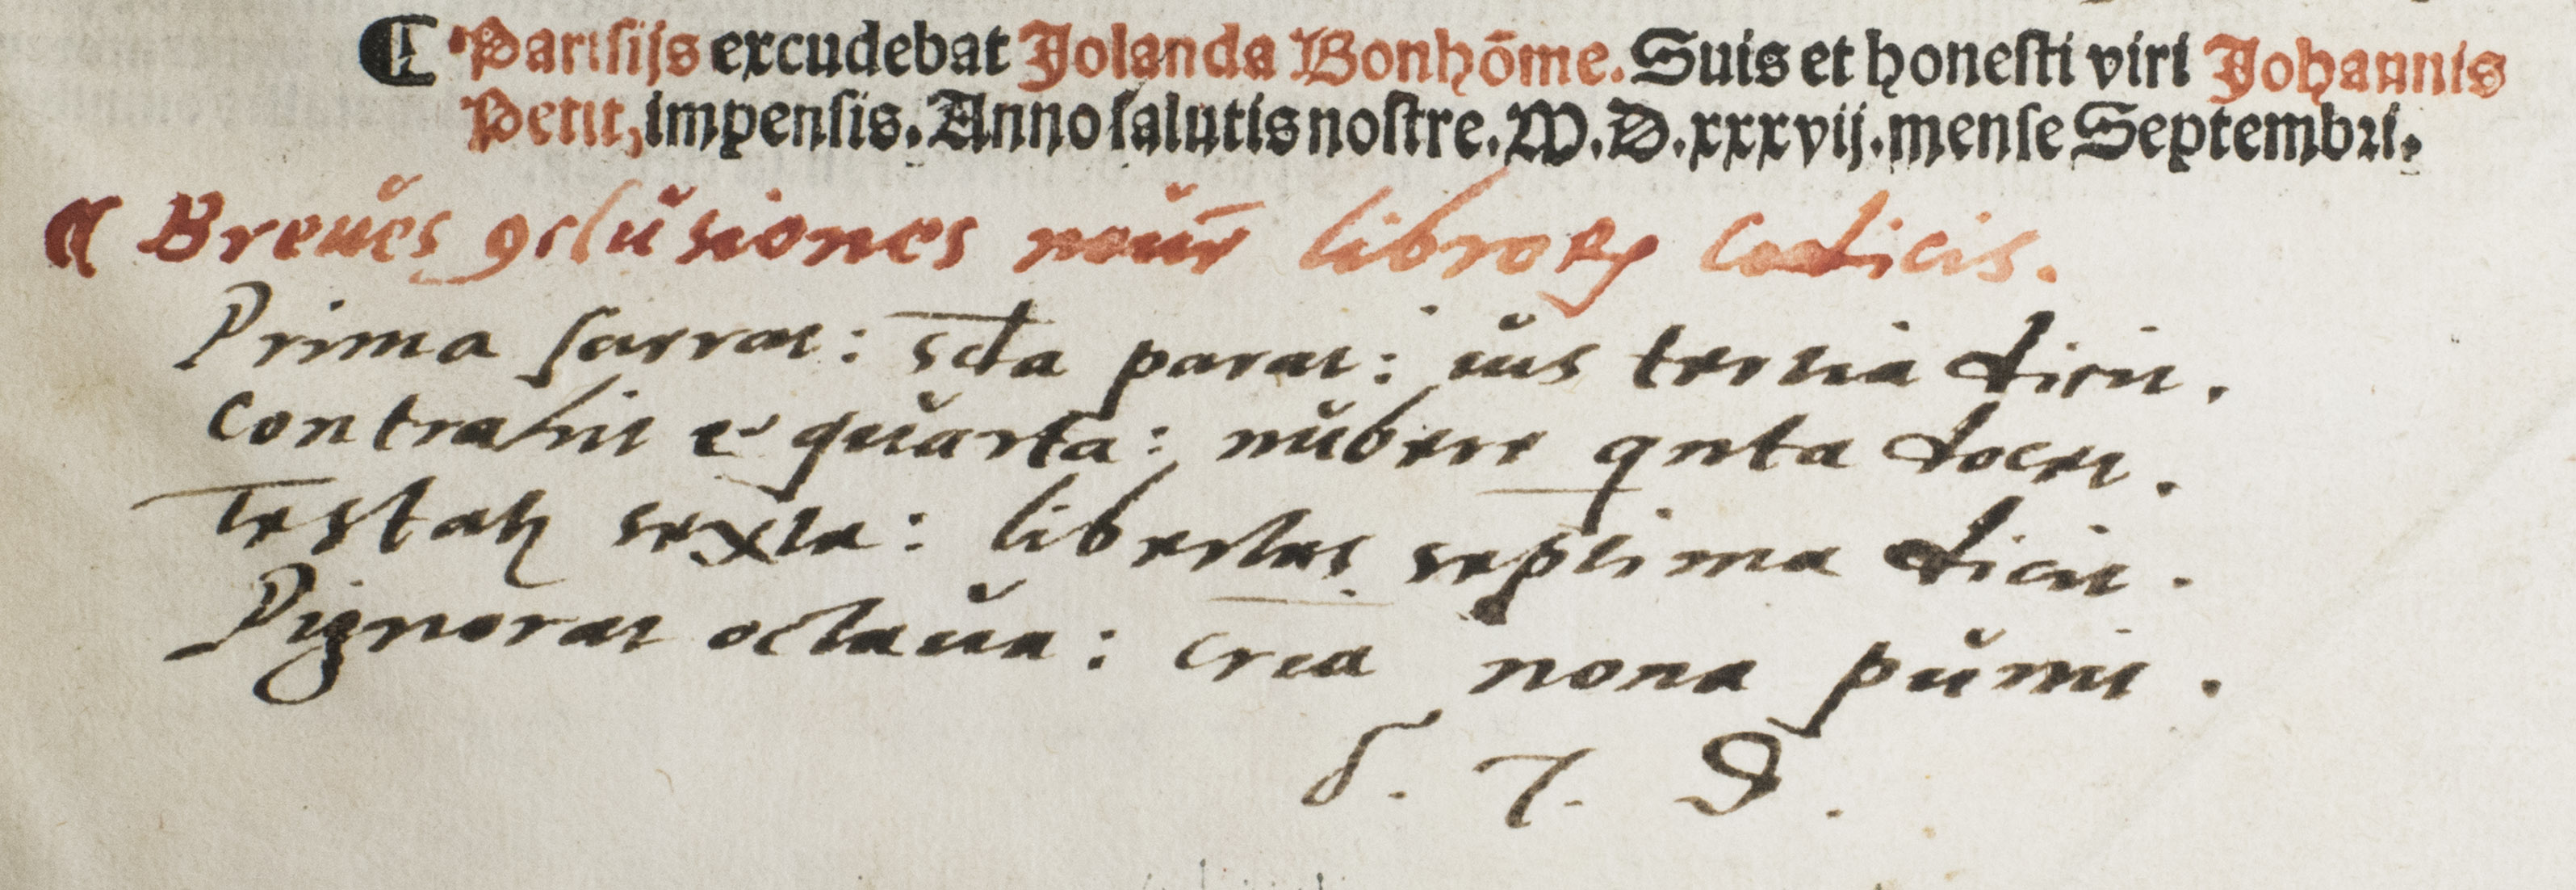 ¶ Parisijs excudebat Jolanda Bonhōme. Suis et honesti viri Johannis
Petit, impensis. Anno salutis nostre. M.D.xxxvij. mense Septembri.
¶ Breues ꝯclusiones nouē libroꝝ codicis.
Prima sacrat: scd̄a parat: ius tertia dicit.
Contrahit e quarta: nubere qnta docet.
Testatꝛ sexta: libertas septima dicit.
Pignorat octaua: cria nona punit.